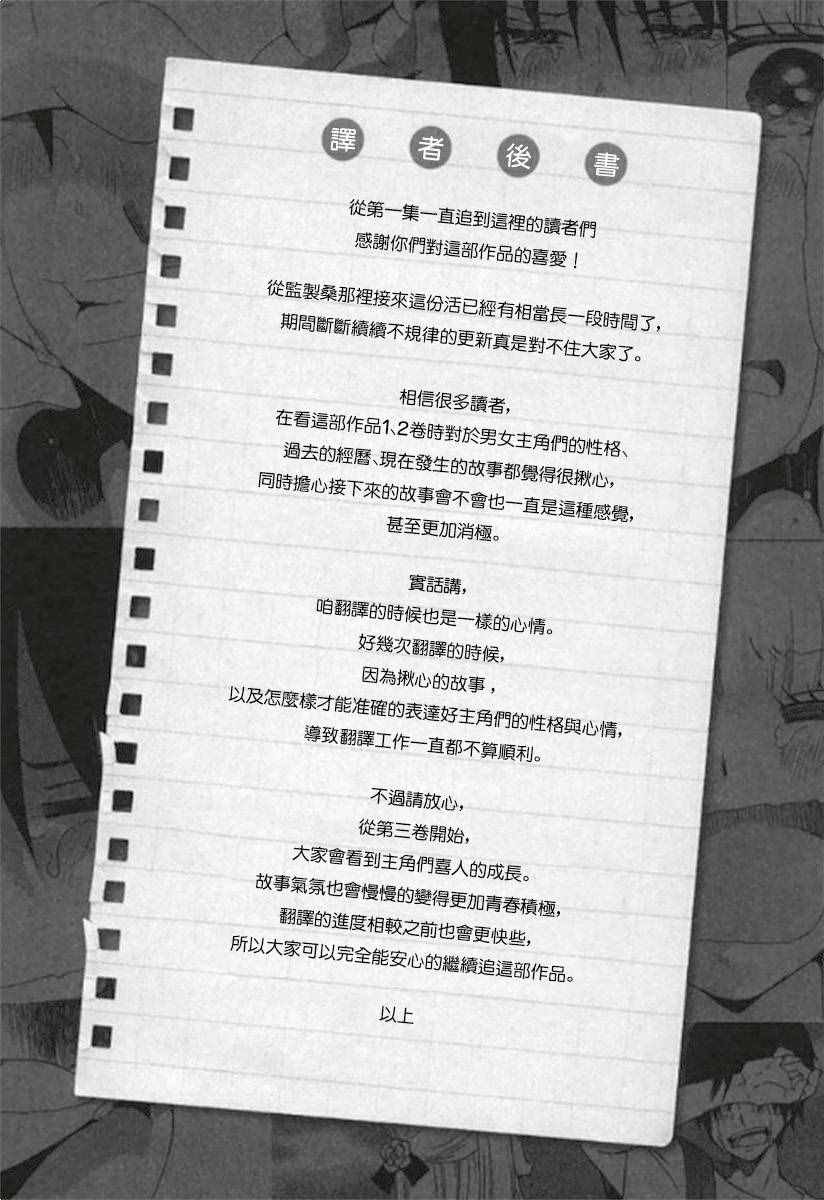 譯者後書
從第一集一直追到這裡的讀者們
感謝你們對這部作品的喜愛！
從監製桑那裡接來這份活已經有相當長一段時間了，
期間斷斷續續不規律的更新真是對不住大家了。
相信很多讀者，
在看這部作品1、2卷時對於男女主角們的性格、
過去的經曆、現在發生的故事都覺得很揪心，
同時擔心接下來的故事會不會也一直是這種感覺，
甚至更加消極。
實話講，
咱翻譯的時候也是一樣的心情。
好幾次翻譯的時候，
因為揪心的故事，
以及怎麼樣才能准確的表達好主角們的性格與心情，
導致翻譯工作一直都不算順利。
不過請放心，
從第三卷開始，
大家會看到主角們喜人的成長。
故事氣氛也會慢慢的變得更加青春積極，
翻譯的進度相較之前也會更快些，
所以大家可以完全能安心的繼續追這部作品。
以上